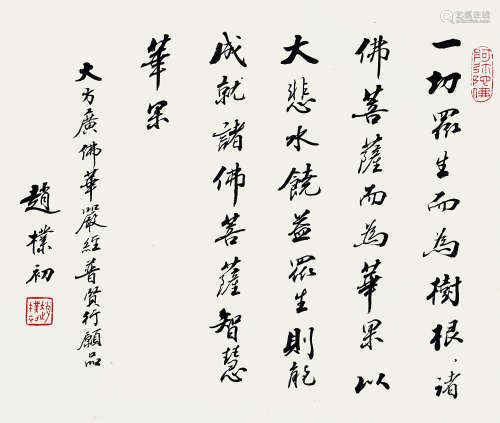 阿弥陀佛
一切眾生而為樹根、諸
佛菩薩而為華果以
大悲水饒益眾生則能
成就諸佛菩薩智慧
華果
大方廣佛華嚴經普賢行願品
趙樸初